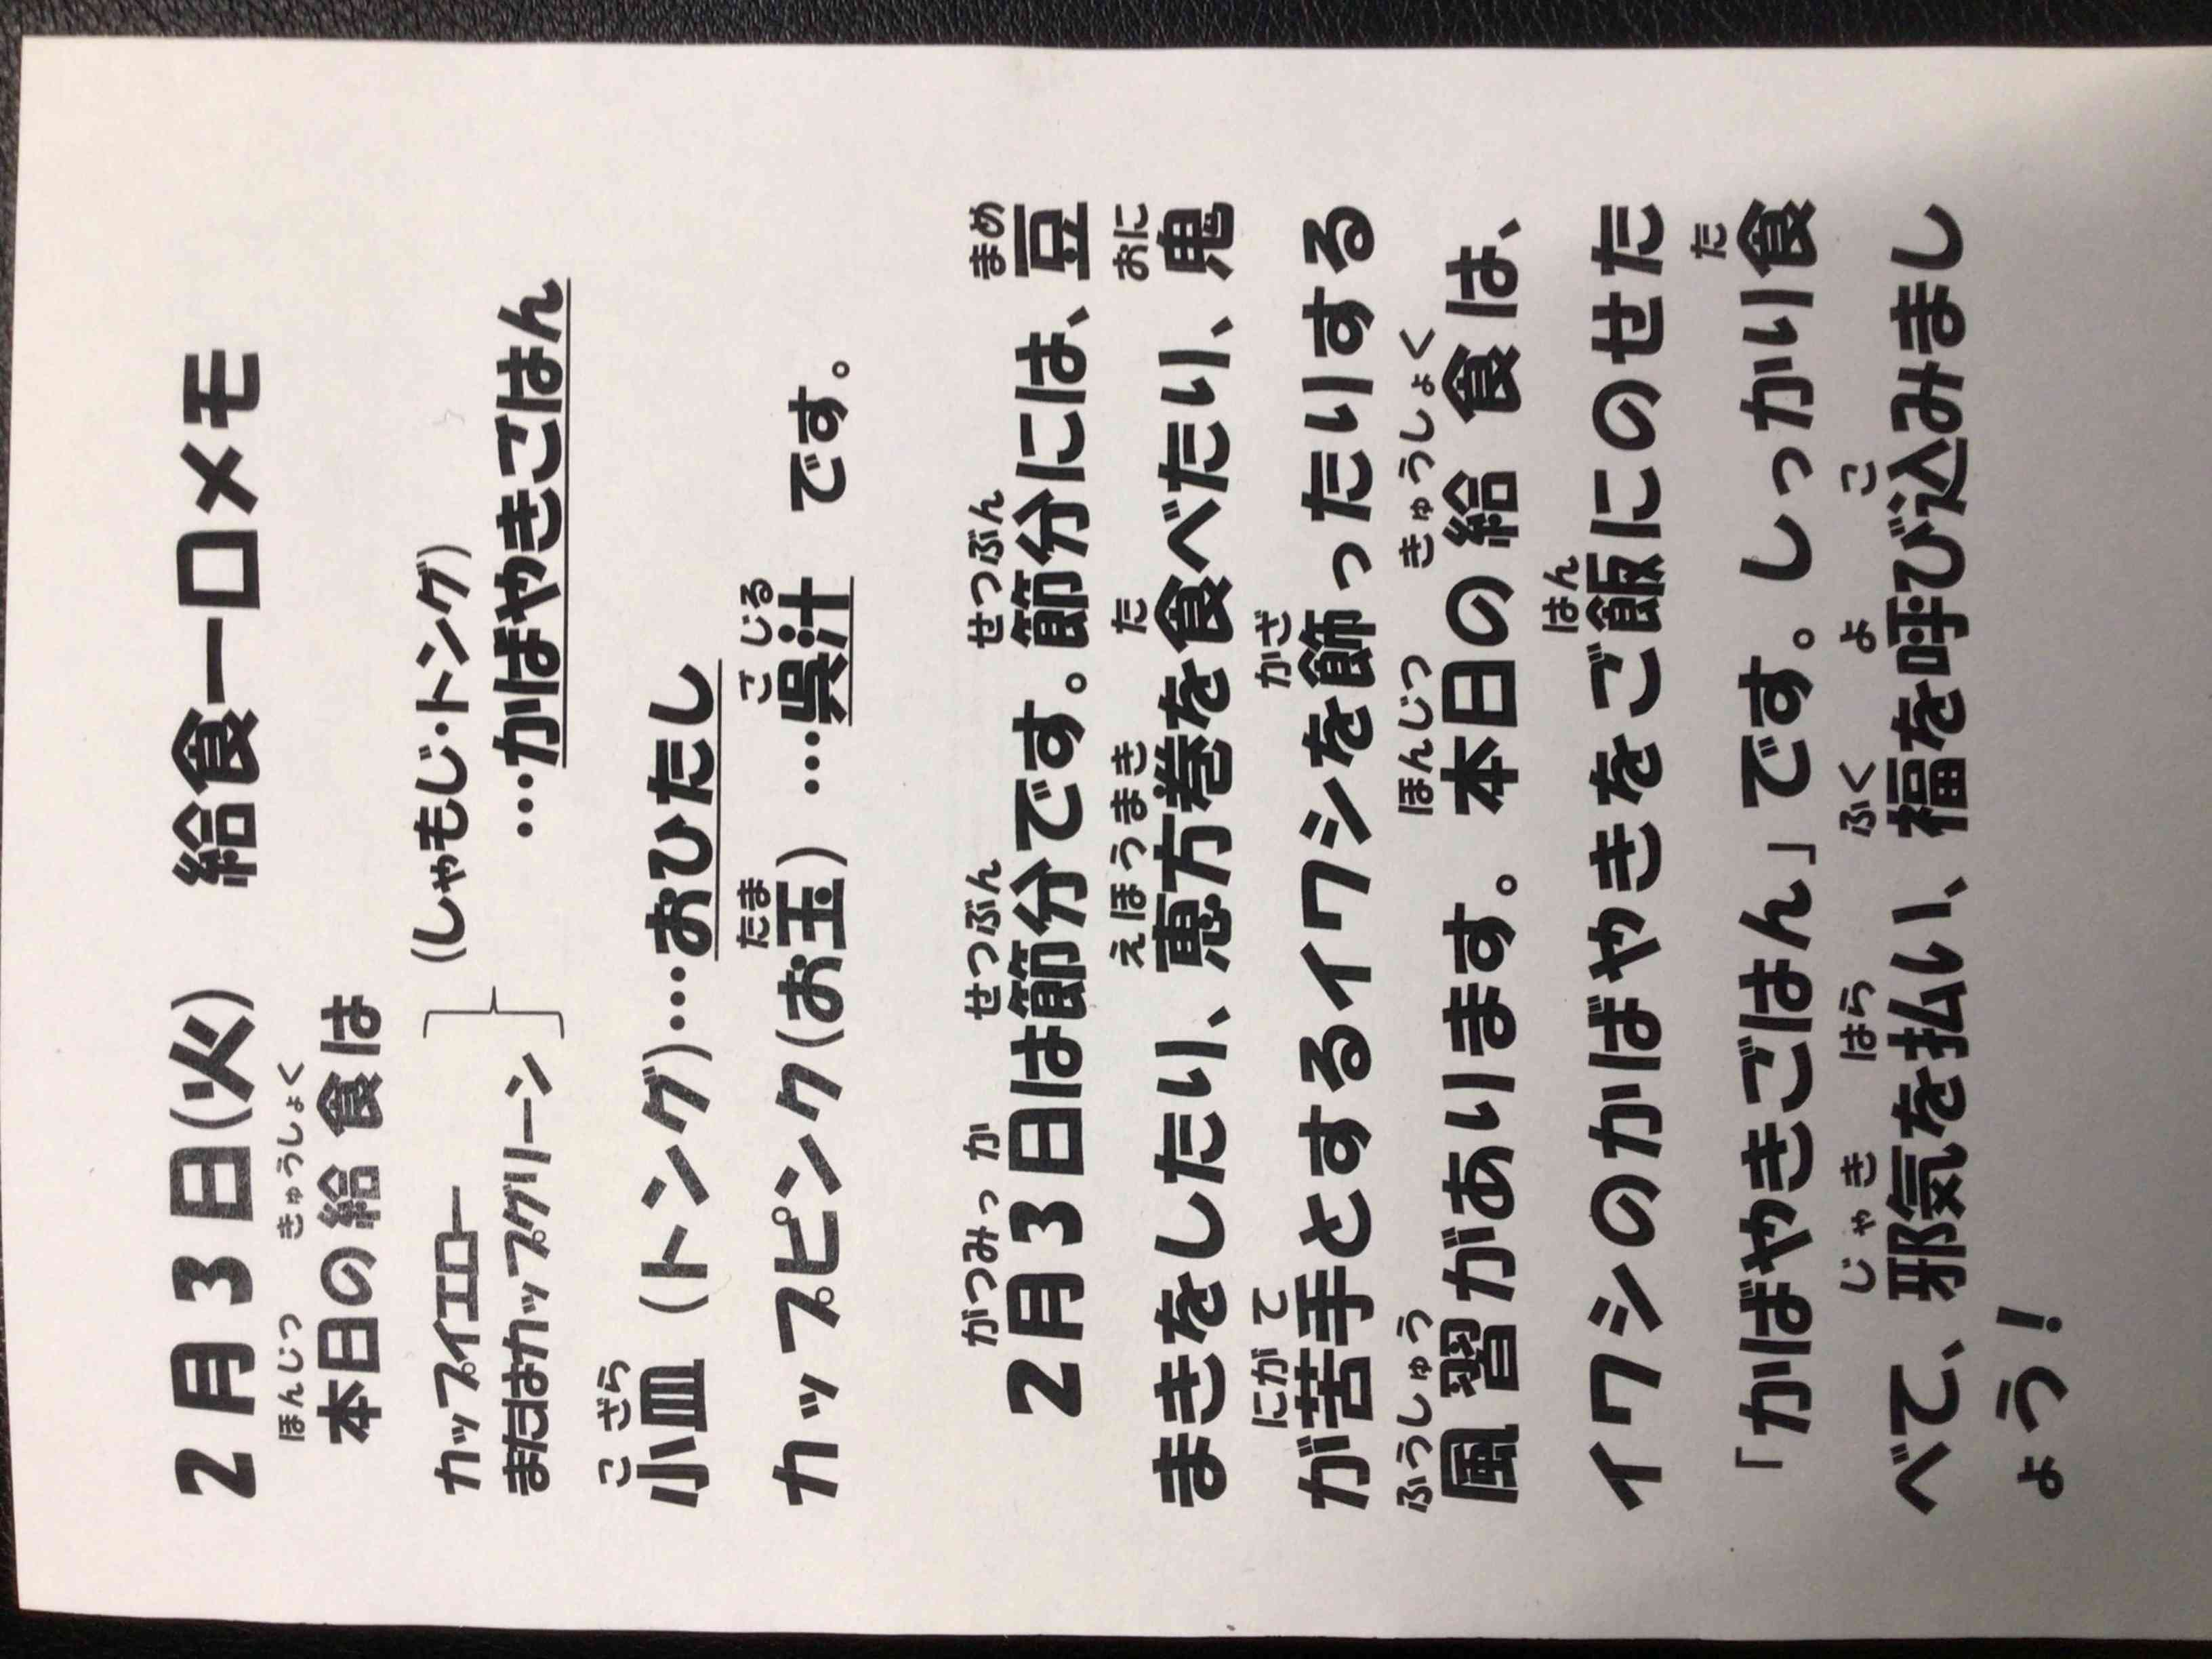 2月3日(火)　給食一口メモ
ほんじつ　きゅうしょく
本日の給食は
カップイエロー　(しゃもじ・トング)
またはカップグリーン　…かばやきごはん
こざら
小皿（トング)…おひたし
たま　ごじる
カップピンク(お玉）…呉汁　です。
がつみっか　せつぶん　せつぶん　まめ
2月3日は節分です。節分には、豆
えほうまき　た　おに
まきをしたり、恵方巻を食べたり、鬼
にがて　かざ
が苦手とするイワシを飾ったりする
ふうしゅう　ほんじつ　きゅうしょく
風習があります。本日の給食は、
はん
イワシのかばやきをご飯にのせた
た
「かばやきごはん」です。しっかり食
じゃき　はら　ふく　よ　こ
べて、邪気を払い、福を呼び込みまし
ょう！